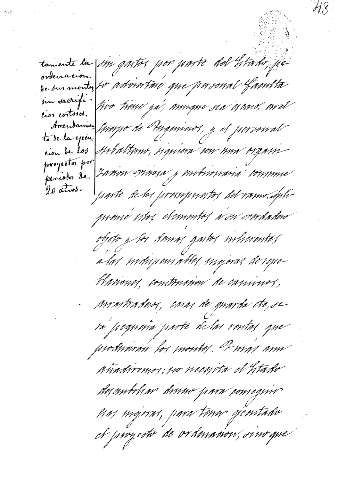 43
tamente la
ordenacion
de sus montes
sin sacrifi-
cios costosos.
Arrendamien-
to de la ejecu-
cion de los
proyectos por
periodos de
20 años.
sin gastos por parte del Estado, pe-
ro adviertase que personal faculta-
tivo tiene ya, aunque sea escaso en el
cuerpo de Ingenieros, y el personal
subalterno, siquiera con una organi-
zacion escasa y embrionaria consume
parte de los presupuestos del ramo. Apli-
quense estos elementos a su verdadero
objeto y los demas gastos inherentes
á las indispensables mejoras de repo-
blaciones, construccion de caminos,
arrastraderos, casas de guarda etc, se-
rá pequeña parte de las rentas que
produzcan los montes. Y más aun
añadiremos: no necesita el Estado
desembolsar dinero para conseguir
esas mejoras, para tener ejecutado
el proyecto de ordenacion, sino que